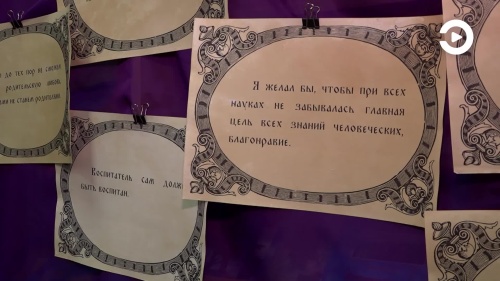 до тех пор не сможем
родительскую любовь,
не станем родителями.
Воспитатель сам долж
быть воспитан.
Я желал бы, чтобы при всех
науках не забывалась главная
цель всех знаний человеческих,
благонравие.